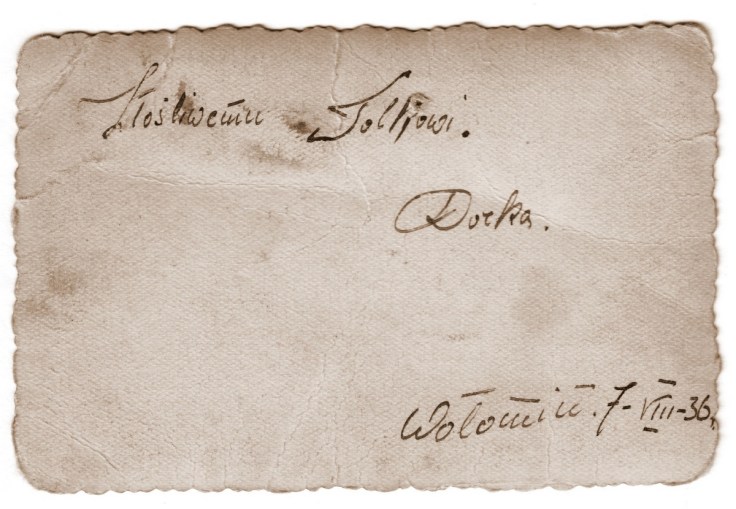 Złośliwemu Lolkowi.
Dorka.
Wołomin. 7-VIII-36